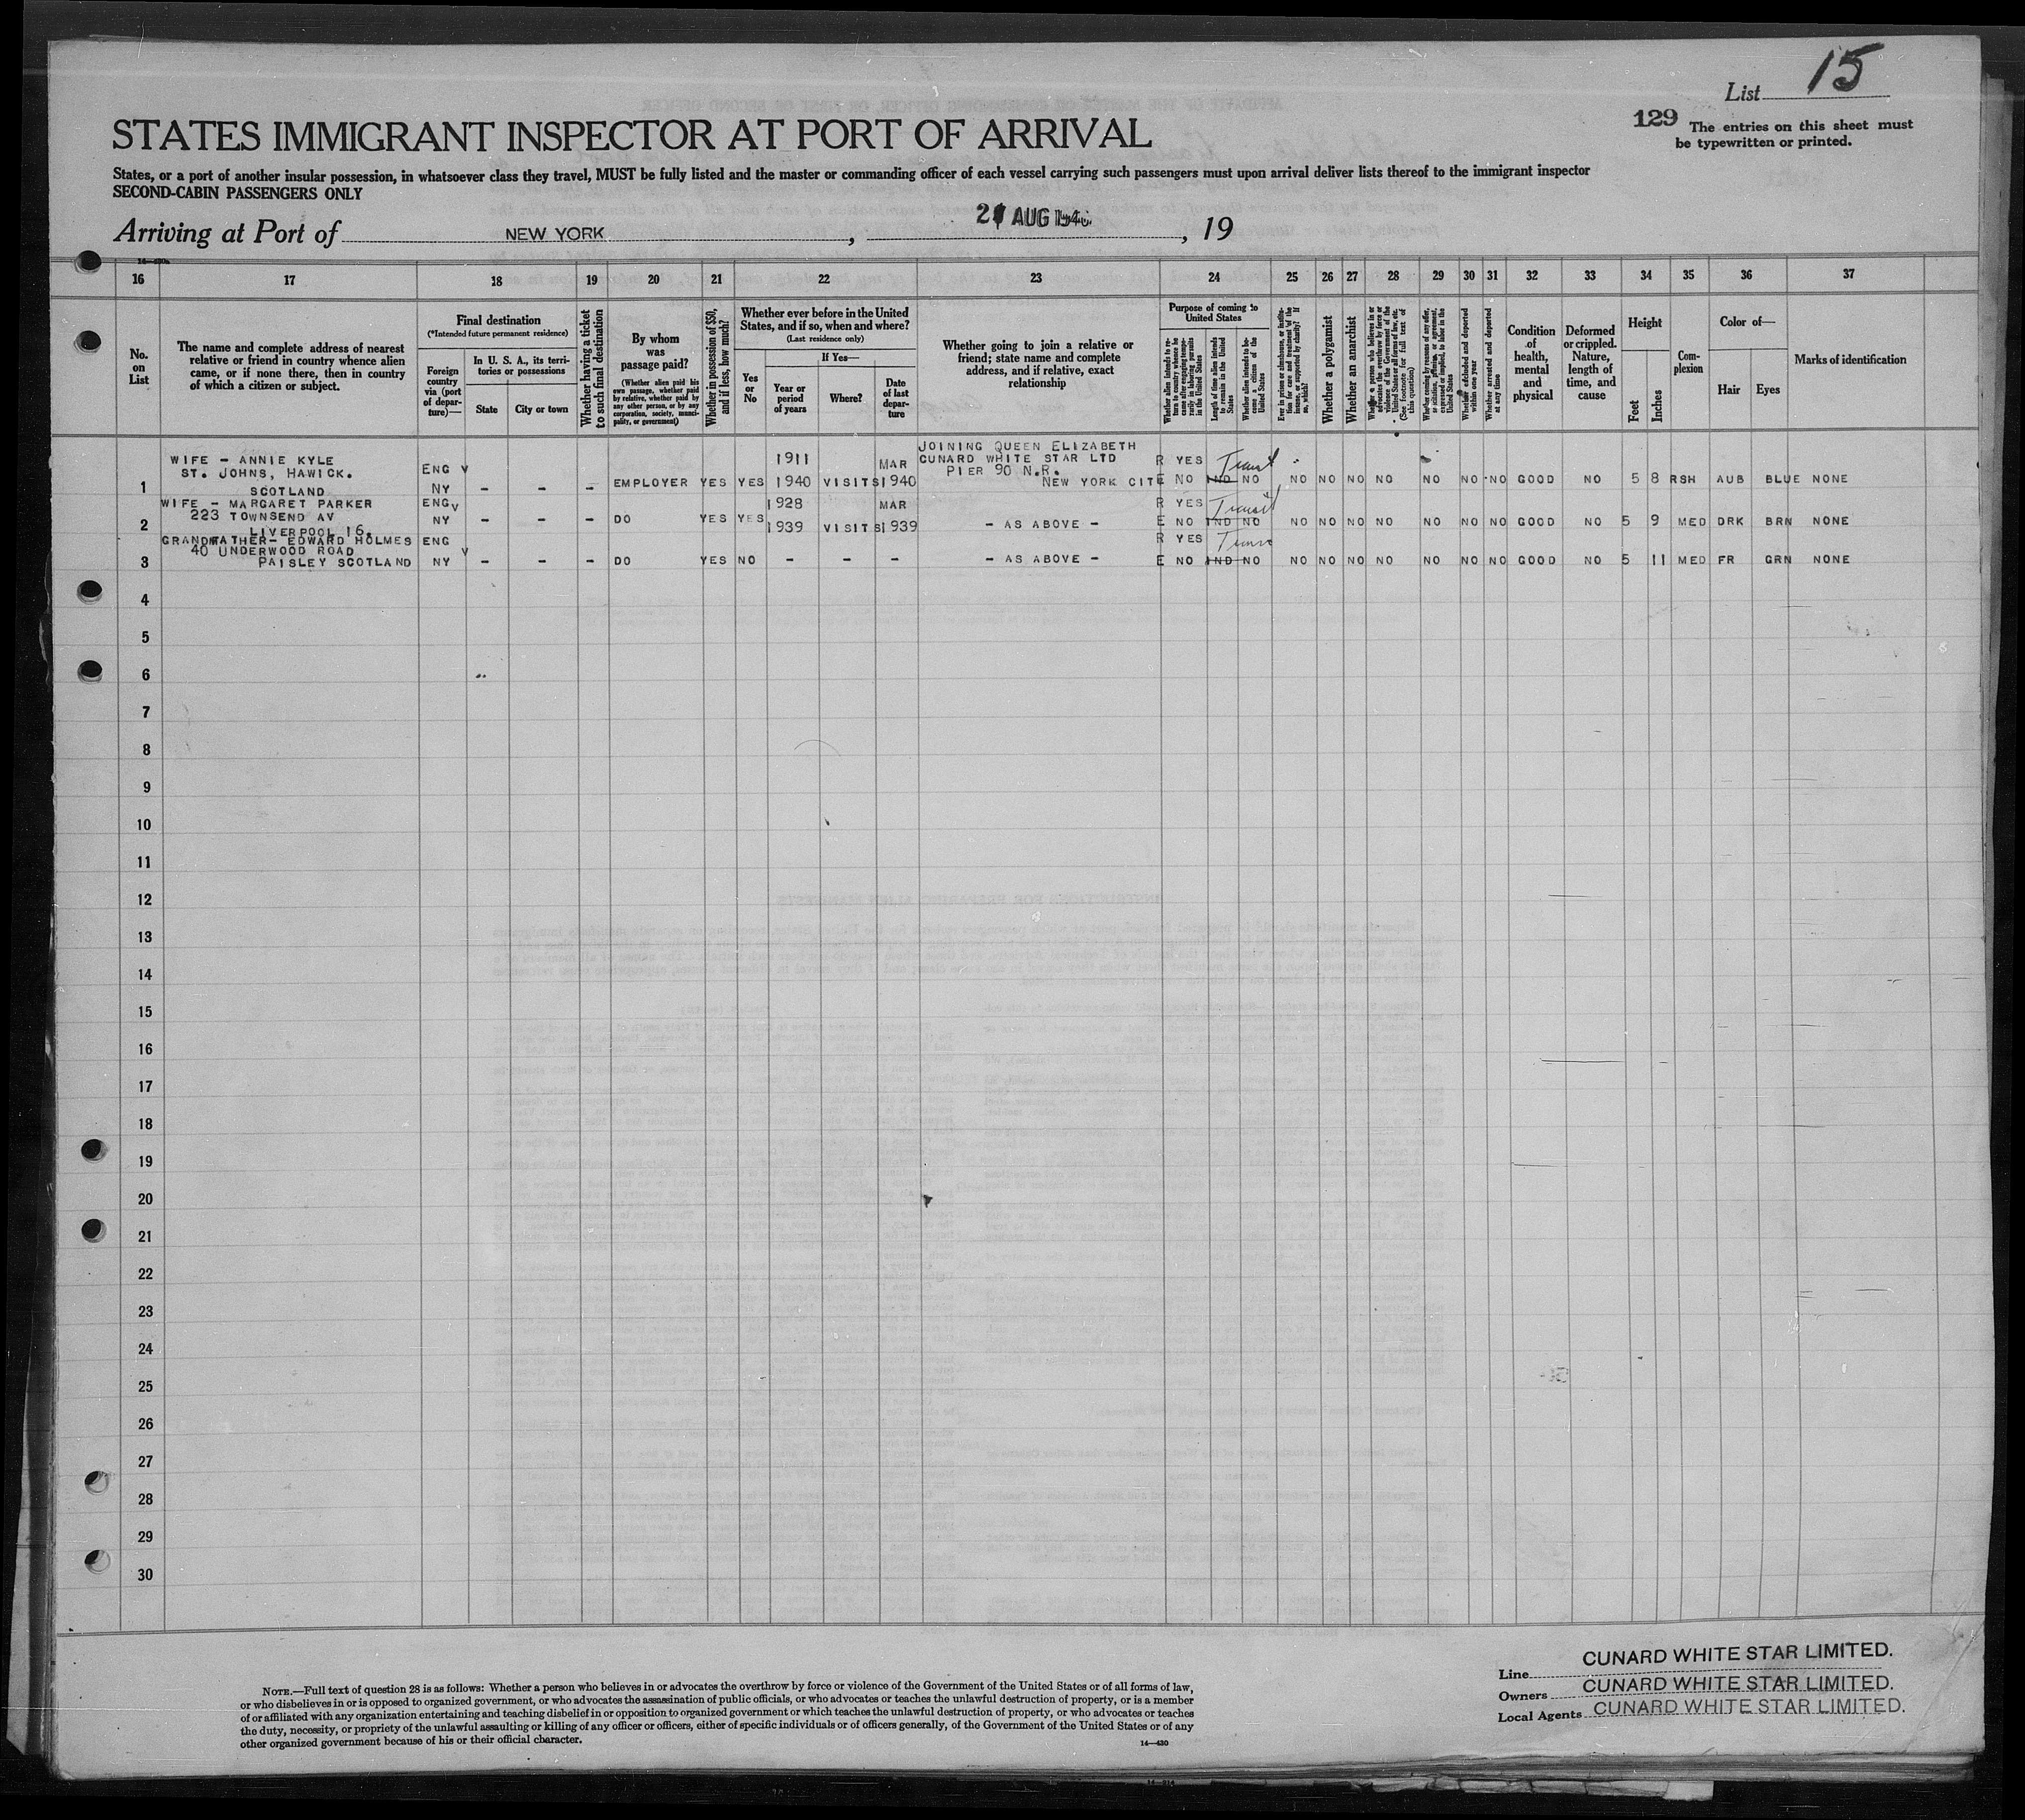 List 15
129
The entries on this sheet must
be typewritten or printed.
STATES IMMIGRANT INSPECTOR AT PORT OF ARRIVAL
States, or a port of another insular possession, in whatsoever class they travel, MUST be fully listed and the master or commanding officer of each vessel carrying such passengers must upon arrival deliver lists thereof to the immigrant inspector
SECOND-CABIN PASSENGERS ONLY
Arriving at Port of NEW YORK, AUG, 19
16 17 18 19 20 21 22 23 24 25 26 27 28 29 30 31 32 33 34 35 36 37
No. on List
The name and complete address of nearest
relative or friend in country whence alien
came, or if none there, then in country
of which a citizen or subject.
Final destination
(*Intended future permanent residence)
Foreign country via (port of departure)—
In U. S. A., its territories or possessions
State
City or town
Whether having a ticket to such final destination
By whom was passage paid?
(Whether alien paid his own passage, whether paid by relative, whether paid by any other person, or by any corporation, society, municipality, or government)
Whether in possession of $50, and if less, how much?
Whether ever before in the United
States, and if so, when and where?
(Last residence only)
Yes or No
If Yes—
Year or period of years
Where?
Date of last departure
Whether going to join a relative or
friend; state name and complete
address, and if relative, exact
relationship
Purpose of coming to United States
Length of time alien intends to remain in the United States
Whether alien intends to become a citizen of the United States
Whether a polygamist
Whether an anarchist
Whether excluded and deported within one year
Whether arrested and deported at any time
Condition of health, mental and physical
Deformed or crippled. Nature, length of time, and cause
Height
Feet
Inches
Complexion
Color of—
Hair
Eyes
Marks of identification
WIFE - ANNIE KYLE
ST. JOHNS, HAWICK.
SCOTLAND
1 ENG V NY - - - EMPLOYER YES YES 1911 1940 VISITS MAR 1940
JOINING QUEEN ELIZABETH
CUNARD WHITE STAR LTD
PIER 90 N.R.
NEW YORK CIT
R YES Transit
E NO IND NO NO NO NO NO NO NO NO GOOD NO 5 8 RSH AUB BLUE NONE
WIFE - MARGARET PARKER
223 TOWNSEND AV
LIVERPOOL 16.
2 ENG V NY - - - DO YES YES 1928 1939 VISITS MAR 1939 - AS ABOVE -
R YES Transit
E NO IND NO NO NO NO NO NO NO NO GOOD NO 5 9 MED DRK BRN NONE
GRANDFATHER- EDWARD HOLMES
40 UNDERWOOD ROAD
PAISLEY SCOTLAND
3 ENG V NY - - - DO YES NO - - - - AS ABOVE -
R YES Trans
E NO IND NO NO NO NO NO NO NO NO GOOD NO 5 11 MED FR GRN NONE
4
5
6
7
8
9
10
11
12
13
14
15
16
17
18
19
20
21
22
23
24
25
26
27
28
29
30
NOTE.—Full text of question 28 is as follows: Whether a person who believes in or advocates the overthrow by force or violence of the Government of the United States or of all forms of law,
or who disbelieves in or is opposed to organized government, or who advocates the assassination of public officials, or who advocates or teaches the unlawful destruction of property, or is a member
of or affiliated with any organization entertaining and teaching disbelief in or opposition to organized government or which teaches the unlawful destruction of property, or who advocates or teaches
the duty, necessity, or propriety of the unlawful assaulting or killing of any officer or officers, either of specific individuals or of officers generally, of the Government of the United States or of any
other organized government because of his or their official character.
14—430
Line CUNARD WHITE STAR LIMITED.
Owners CUNARD WHITE STAR LIMITED.
Local Agents CUNARD WHITE STAR LIMITED.